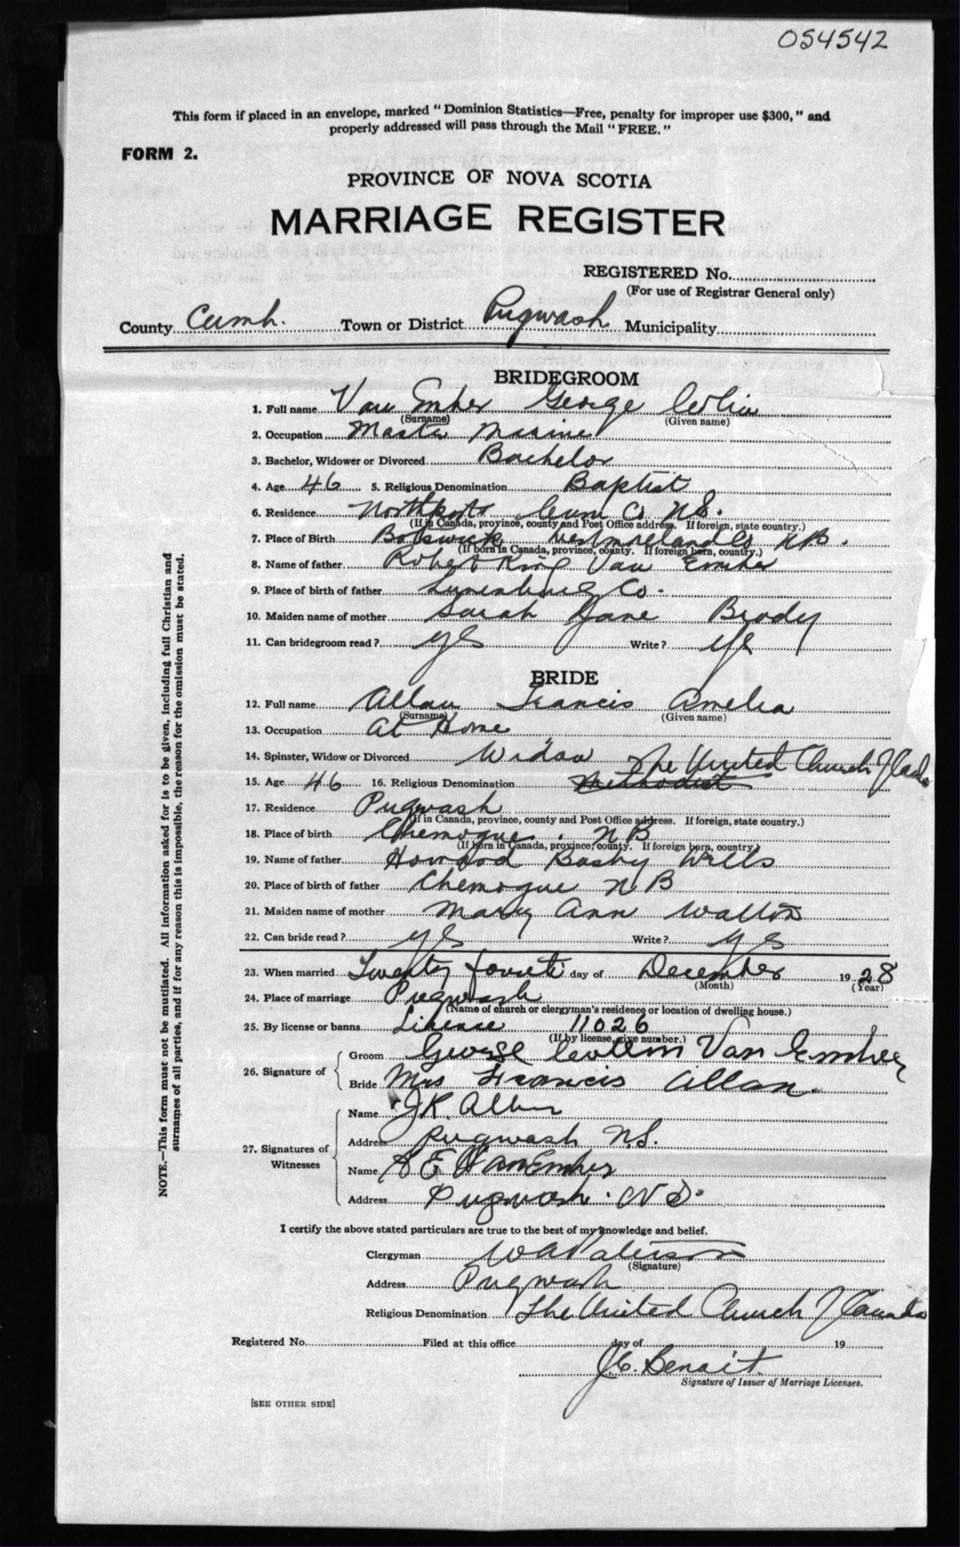 054542
This form if placed in an envelope, marked "Dominion Statistics—Free, penalty for improper use $300," and
properly addressed will pass through the Mail "FREE."
FORM 2.
PROVINCE OF NOVA SCOTIA
MARRIAGE REGISTER
REGISTERED No.
(For use of Registrar General only)
County Cumb. Town or District Pugwash Municipality
BRIDEGROOM
1. Full name Van Ember George
(Surname) (Given name)
2. Occupation Master Marine
3. Bachelor, Widower or Divorced Bachelor
4. Age 46 5. Religious Denomination Baptist
6. Residence Northport Cum Co N.S.
(If in Canada, province, county and Post Office address. If foreign, state country.)
7. Place of Birth Westmoreland Co N.B.
(If born in Canada, province, county. If foreign born, country.)
8. Name of father Robert King Van Ember
9. Place of birth of father Lunenburg Co.
10. Maiden name of mother Sarah Jane Brody
11. Can bridegroom read? yes Write? yes
BRIDE
12. Full name Allan Francis Amelia
(Surname) (Given name)
13. Occupation At Home
14. Spinster, Widow or Divorced Widow The United Church of Canada
15. Age 46 16. Religious Denomination Methodist
17. Residence Pugwash
(If in Canada, province, county and Post Office address. If foreign, state country.)
18. Place of birth Chemogue. NB
(If born in Canada, province, county. If foreign born, country)
19. Name of father Wells
20. Place of birth of father Chemogue N B
21. Maiden name of mother Mary Ann Walton
22. Can bride read? yes Write? yes
23. When married Twenty day of December 1928
(Month) (Year)
24. Place of marriage Pugwash
(Name of church or clergyman's residence or location of dwelling house.)
25. By license or banns License 11026
(If by license, give number.)
26. Signature of Groom George Van Ember
Bride Mrs Francis Allan.
27. Signatures of Witnesses Name J.R. Allan
Address Pugwash N.S.
Name A E VanEmber
Address Pugwash. N.S.
I certify the above stated particulars are true to the best of my knowledge and belief.
Clergyman W A Paterson
(Signature)
Address Pugwash
Religious Denomination The United Church of Canada
Registered No. Filed at this office day of 19
J.C. Benoit.
Signature of Issuer of Marriage Licenses.
[SEE OTHER SIDE]
NOTE.—This form must not be mutilated. All information asked for is to be given, including full Christian and
surnames of all parties, and if for any reason this is impossible, the reason for the omission must be stated.